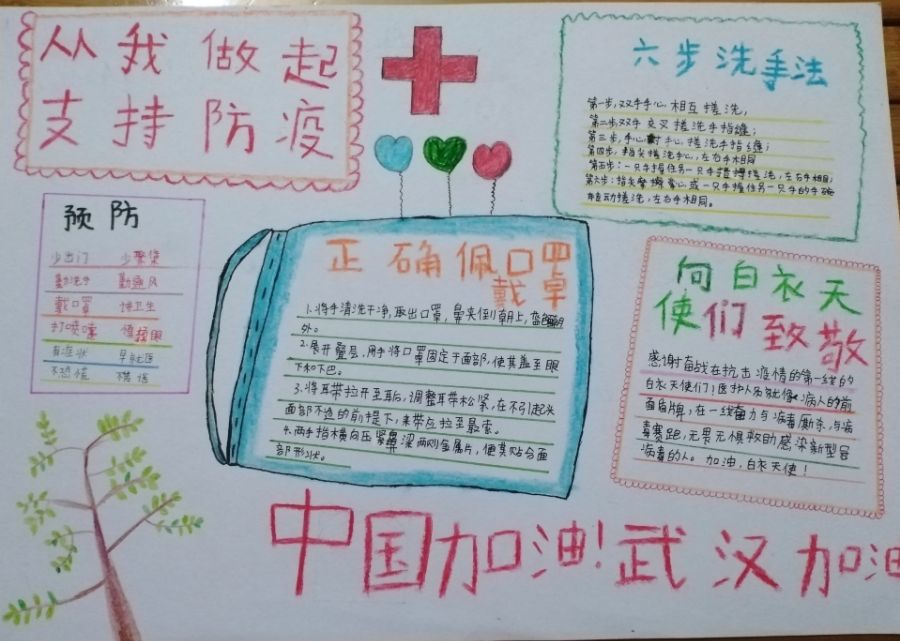 从我做起
支持防疫
六步洗手法
第一步，双手手心相互搓洗，
第二步双手交叉搓洗手指缝；
第三步，手心对手心，搓洗手指缝；
第四步，指尖搓洗手心，左右手相同
第五步：一只手握住另一只手 搓洗，左右手相同；
第六步：指尖 掌心或一只手握住另一只手的手
转动搓洗，左右手相同。
预防
少出门 少聚集
勤洗手 勤通风
戴口罩 讲卫生
打喷嚏
有症状 早就医
不恐慌 不
正确佩口罩
戴
1.将手清洗干净，取出口罩，鼻夹侧朝上，
外。
2.展开叠层，用手将口罩固定于面部，使其盖至眼
下和下巴。
3.将耳带拉开至耳后，调整耳带松紧，在不引起头
面部不适的前提下，耳带应拉至最紧。
4.两手指横向压紧鼻梁两侧金属片，使其贴合面
部形状。
向白衣天
使们致敬
感谢奋战在抗击疫情的第一线的
白衣天使们！医护人员就像病人的前
面盾牌，在一线奋力与病毒厮杀，与病
毒赛跑，无畏无惧救助感染新型冠
病毒的人。加油，白衣天使！
中国加油！武汉加油